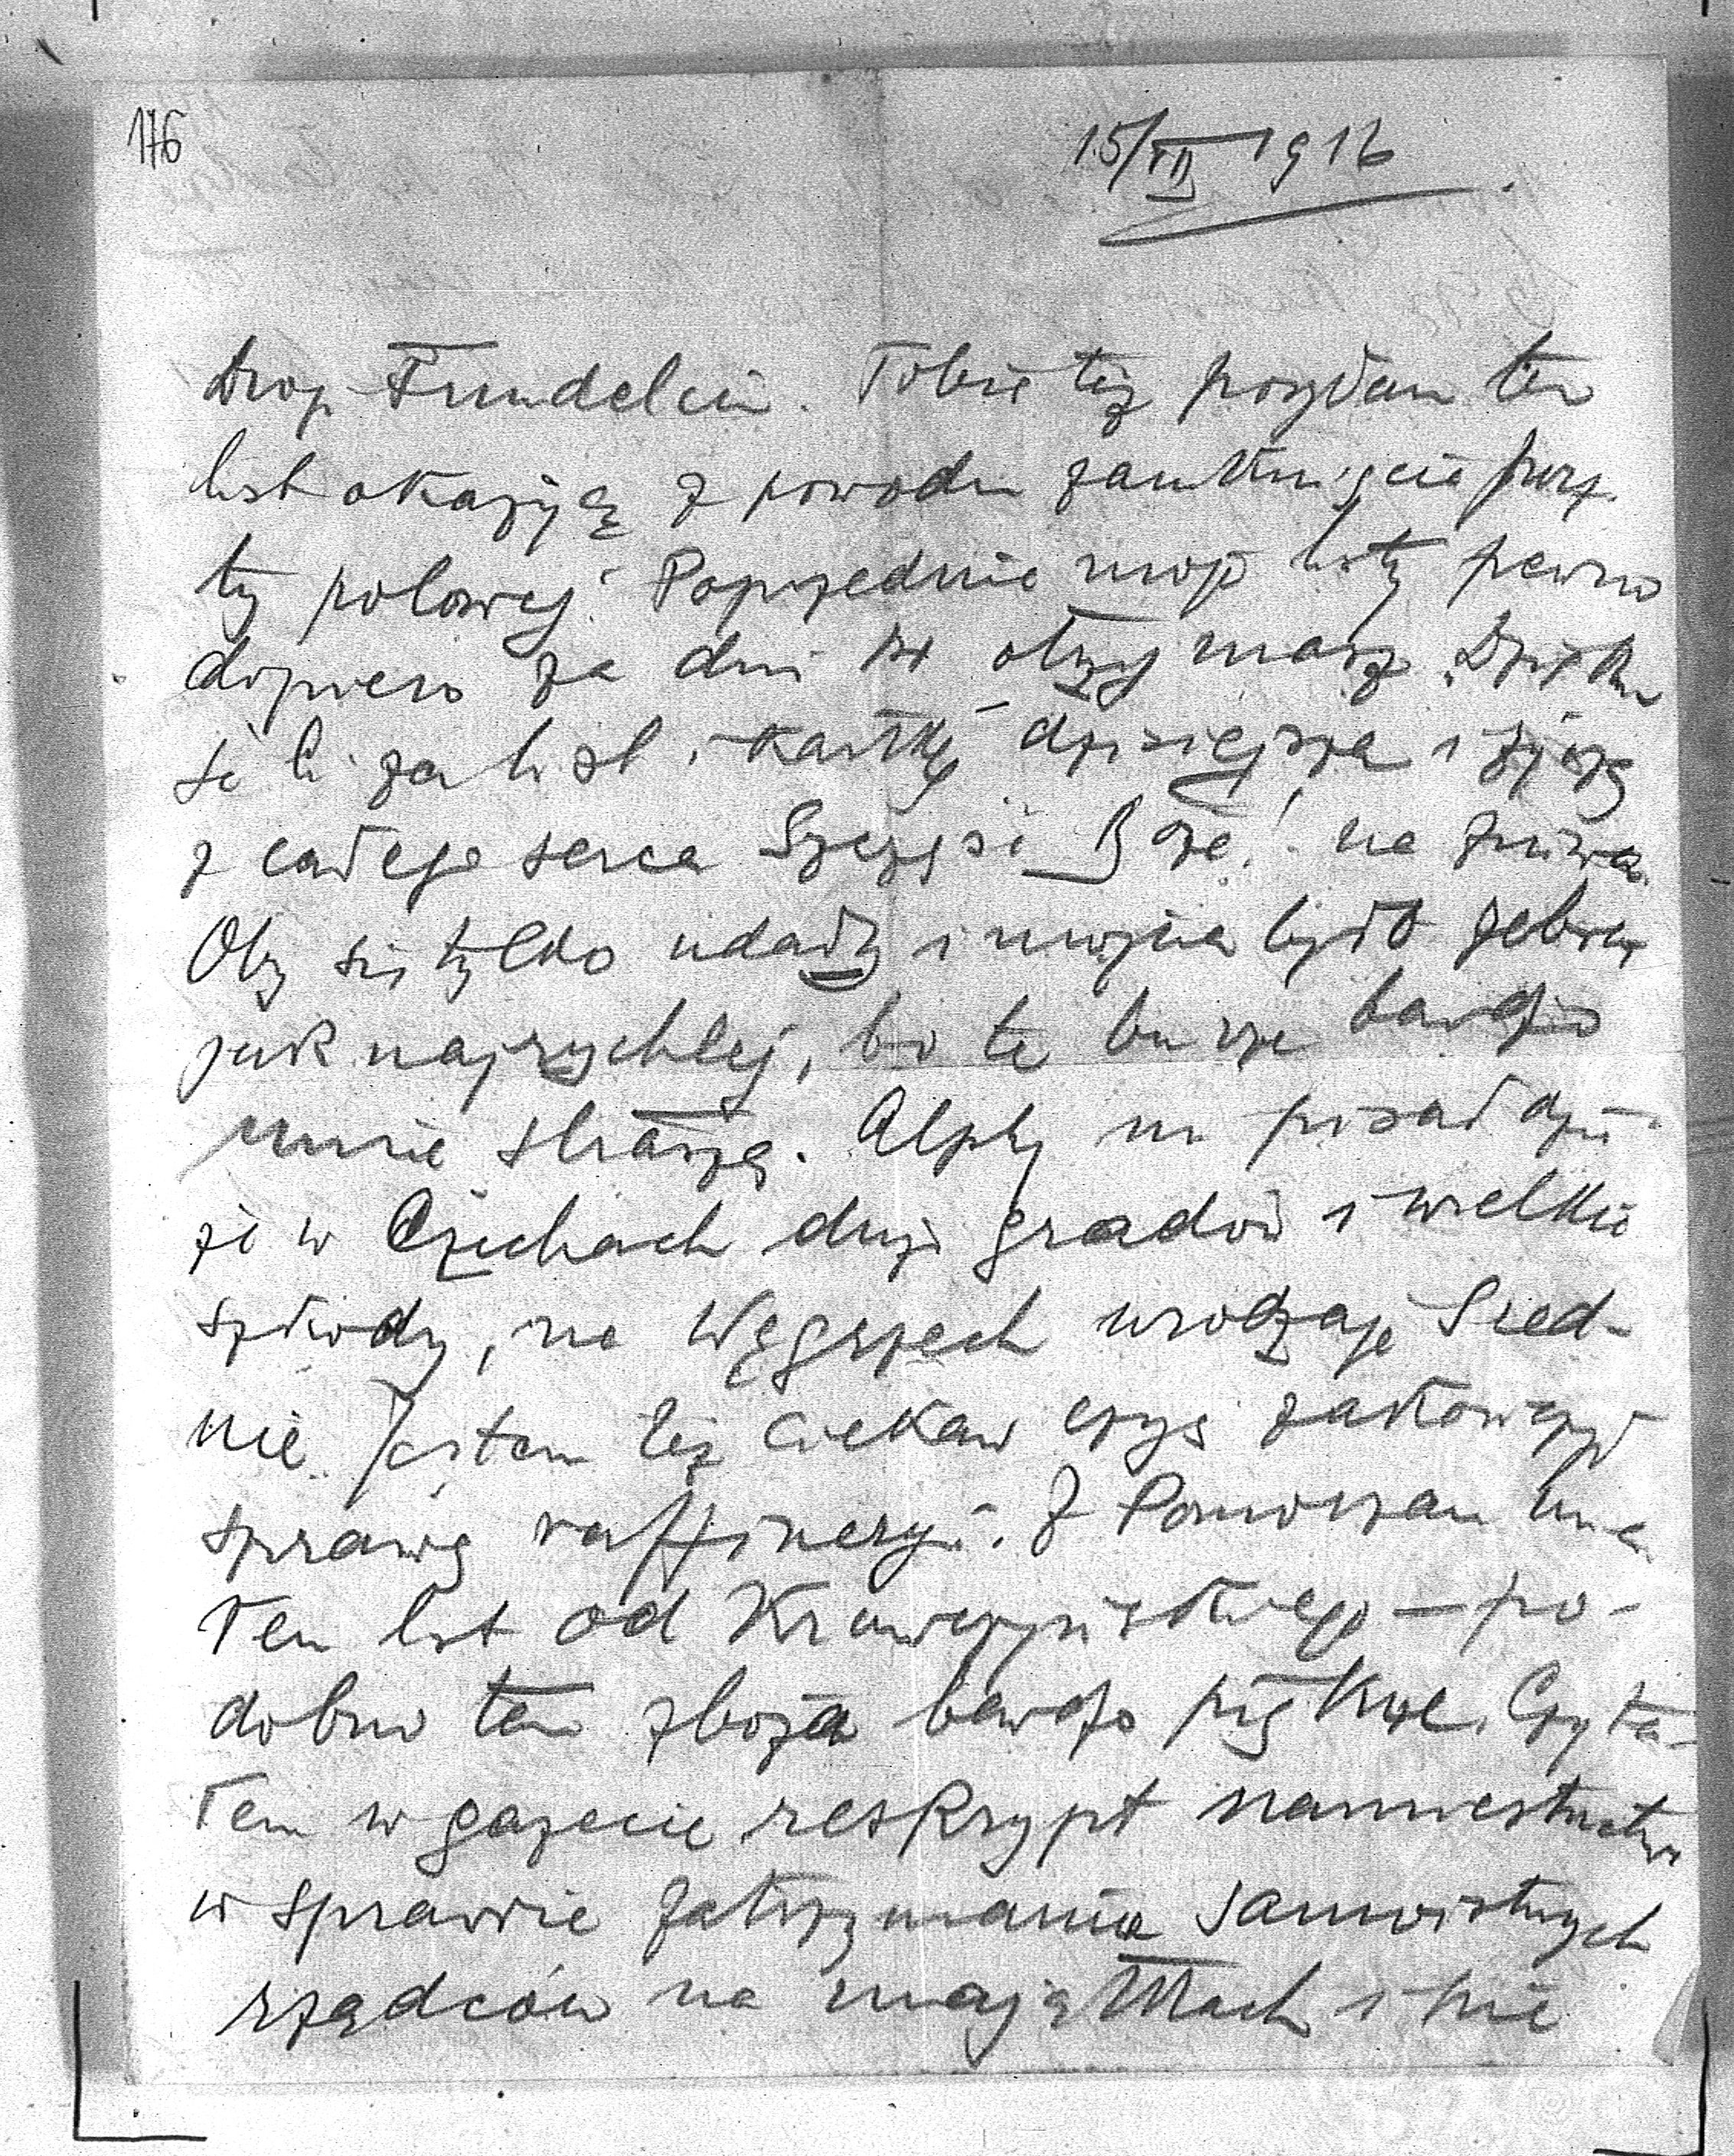 176
15/VII 1916
Drogi Fundelciu. Tobie też posyłam ten
list okazyją z powodu zamknięcia pocz
ty polowej. Poprzednie moje listy pewno
dopiero za dni otrzymasz. Dzięku
ję Ci za list i kartkę dzisiejszą i życzę
z całego serca Szczęść Boże! na żniwa.
Oby się tylko udały i można było zebrać
jak najrychlej, bo te burze bardzo
mnie straszą. Alphy mi pisał dziś
że w Czechach dużo gradów i wielkie
szkody, na Węgrzech urodzaje śred-
nie. Jestem też ciekaw czyś zakończył
sprawę raffineryi. Z Pomorzan mia
łem list od Krawczyńskiego — po-
dobno tam zboża bardzo piękne. Czyta-
łem w gazecie reskrypt namiestnictwa
w sprawie zatrzymania samoistnych
rządców na majątkach i nie